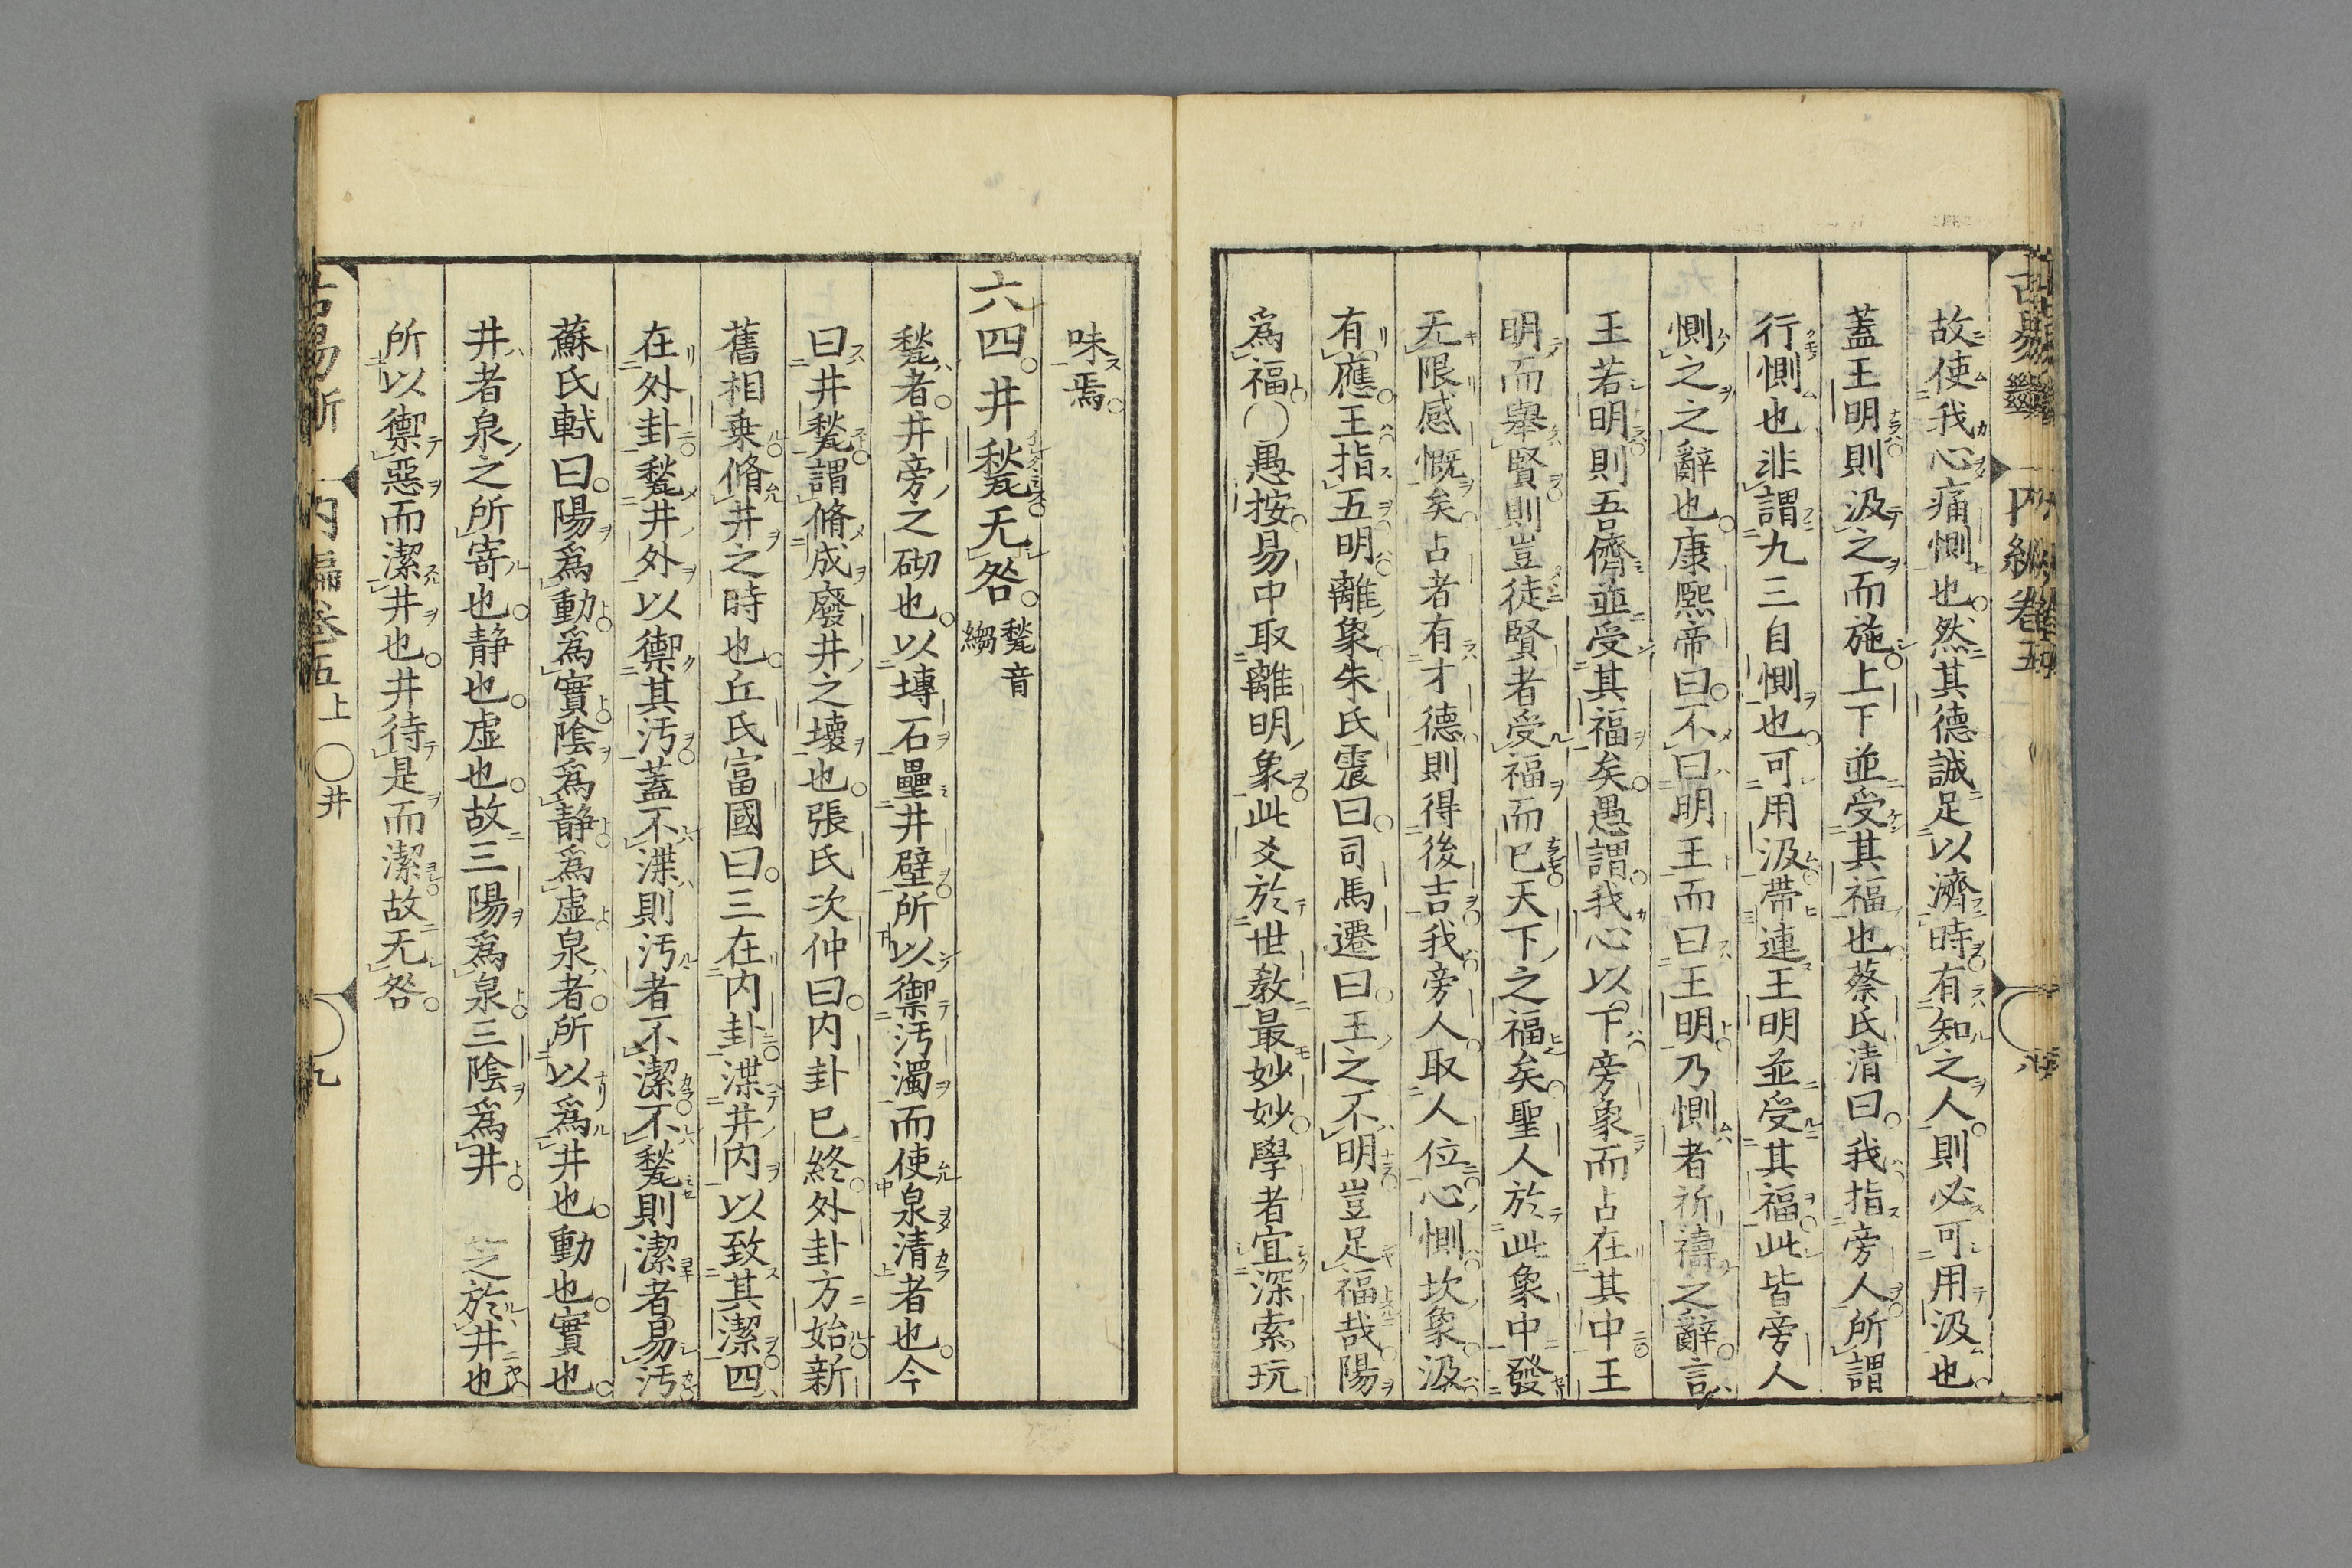 故使我心痛惻也然其德誠足以濟時有知之人則必可用汲也
蓋王明則汲之而施上下並受其福也蔡氏清曰我指旁人所謂
行惻也非謂九三自惻也可用汲帶連王明並受其福此皆旁人
惻之之辭也康熙帝曰不曰明王而曰王明乃惻者祈禱之辭言
王若明則吾儕並受其福矣愚謂我心以下旁象而占在其中王
明而舉賢則豈徒賢者受福而已天下之福矣聖人於此象中發
无限感慨矣占者有才德則得後吉我旁人取人位心惻坎象汲
有應王指五明離象朱氏震曰司馬遷曰王之不明豈足福哉陽
為福〇愚按易中取離明象此爻於世教最妙妙學者宜深索玩
味焉
六四井甃无咎甃音縐
甃者井旁之砌也以塼石壘井壁所以禦汚濁而使泉清者也今
曰井甃謂脩成廢井之壞也張氏次仲曰内卦已終外卦方始新
舊相乗脩井之時也丘氏富國曰三在内卦渫井内以致其潔四
在外卦甃井外以禦其汚蓋不渫則汚者不潔不甃則潔者易汚
蘇氏軾曰陽為動為實陰為静為虚泉者所以為井也動也實也
井者泉之所寄也静也虚也故三陽為泉三陰為井 之於井也
所以禦惡而潔井也井待是而潔故无咎
内編卷五上〇井 九